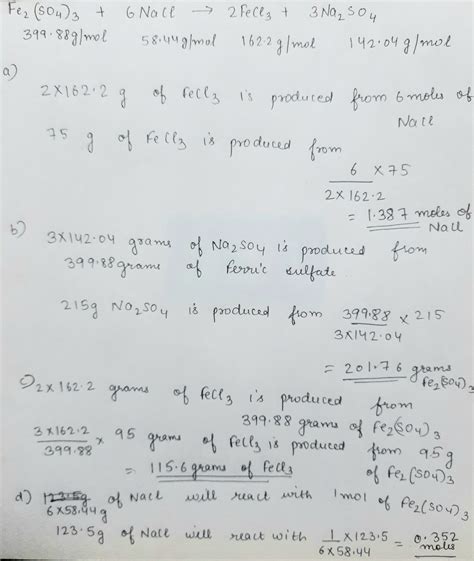 Fe2(SO4)3 + 6 NaCl → 2FeCl3 + 3Na2SO4
399.88g/mol 58.44g/mol 162.2 g/mol 142.04 g/mol
a)
2×162.2 g of FeCl3 is produced from 6 moles of NaCl
75 g of FeCl3 is produced from
6 / 2×162.2 × 75
= 1.387 moles of NaCl
b)
3×142.04 grams of Na2SO4 is produced from
399.88 grams of Ferric sulfate
215g Na2SO4 is produced from 399.88 / 3×142.04 × 215
= 201.76 grams Fe2(SO4)3
c) 2×162.2 grams of FeCl3 is produced from
399.88 grams of Fe2(SO4)3
3×162.2 / 399.88 × 95 grams of FeCl3 is produced from 95g of Fe2(SO4)3
= 115.6 grams of FeCl3
d) 123.5g
6×58.44g of NaCl will react with 1 mol of Fe2(SO4)3
123.5g of NaCl will react with 1 / 6×58.44 × 123.5 = 0.352 moles